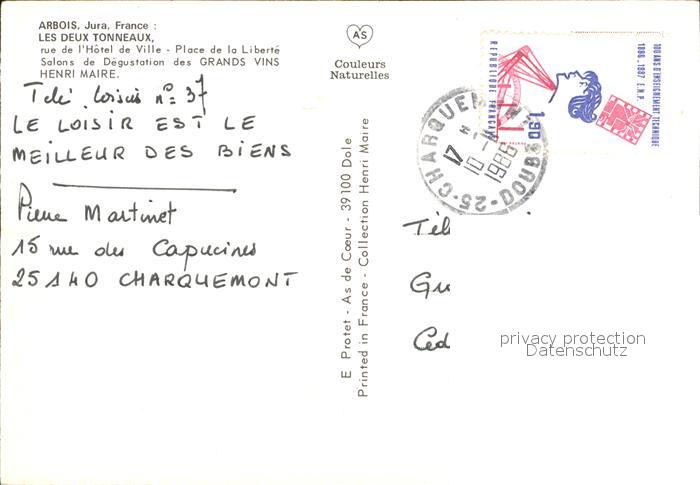 ARBOIS, Jura, France :
LES DEUX TONNEAUX,
rue de l'Hôtel de Ville - Place de la Liberté
Salons de Dégustation des GRANDS VINS
HENRI MAIRE.
Télé loisirs n°= 37
LE LOISIR EST LE
MEILLEUR DES BIENS
Pierre Martinet
15 rue des Capucines
25140 CHARQUEMONT
AS
Couleurs
Naturelles
E Protet - As de Cœur - 39100 Dole
Printed in France - Collection Henri Maire
25-CHARQUEMONT
17 H
10-
1986
DOUBS
REPUBLIQUE FRANÇAISE
1,90
100 ANS D'ENSEIGNEMENT TECHNIQUE
1886-1987 E.N.P.
Tél
Gu
Ced
privacy protection
Datenschutz